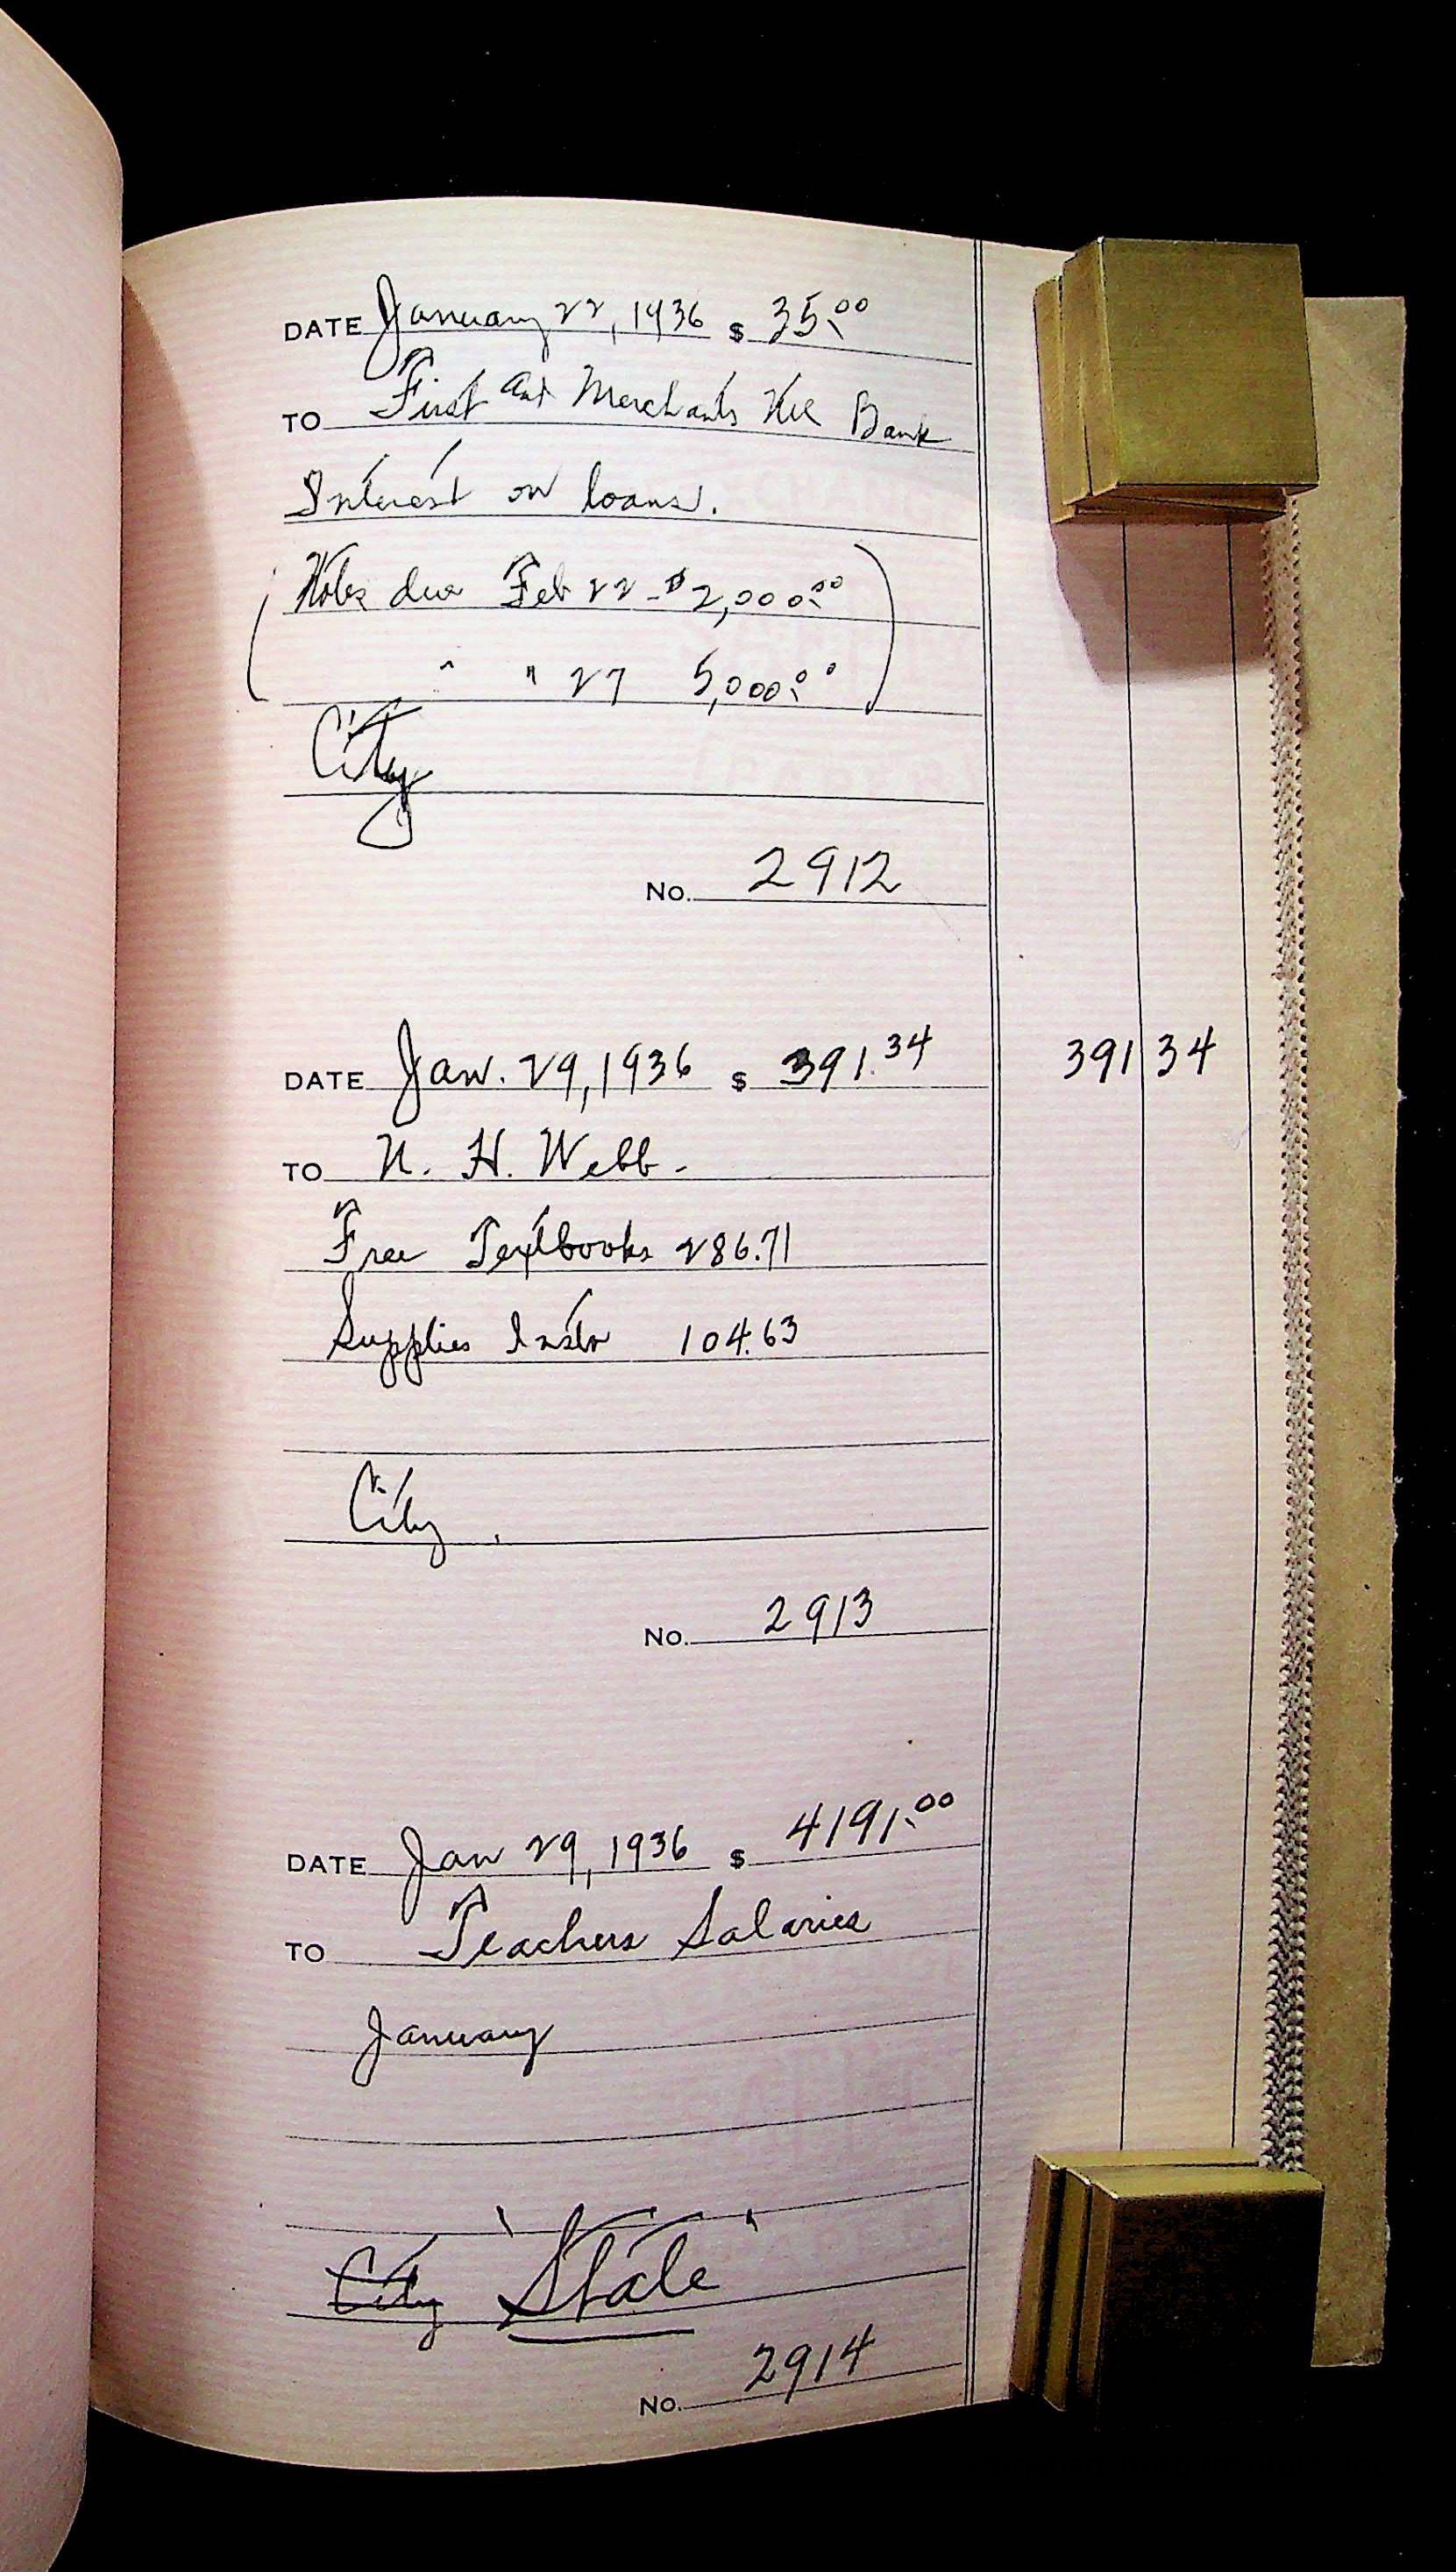 DATE January 22, 1936 $ 35.00
TO First and Merchants Ntl Bank
Interest on loans.
(Notes due Feb 22 - $2,000.00)
" " 27 5,000.00
City
No. 2912
DATE Jan. 29, 1936 $ 391.34 391 34
TO N. H. Webb.
Free Textbooks 286.71
Supplies Instr 104.63
City.
No. 2913
DATE Jan 29, 1936 $ 4191.00
TO Teachers Salaries
January
City "State"
No. 2914